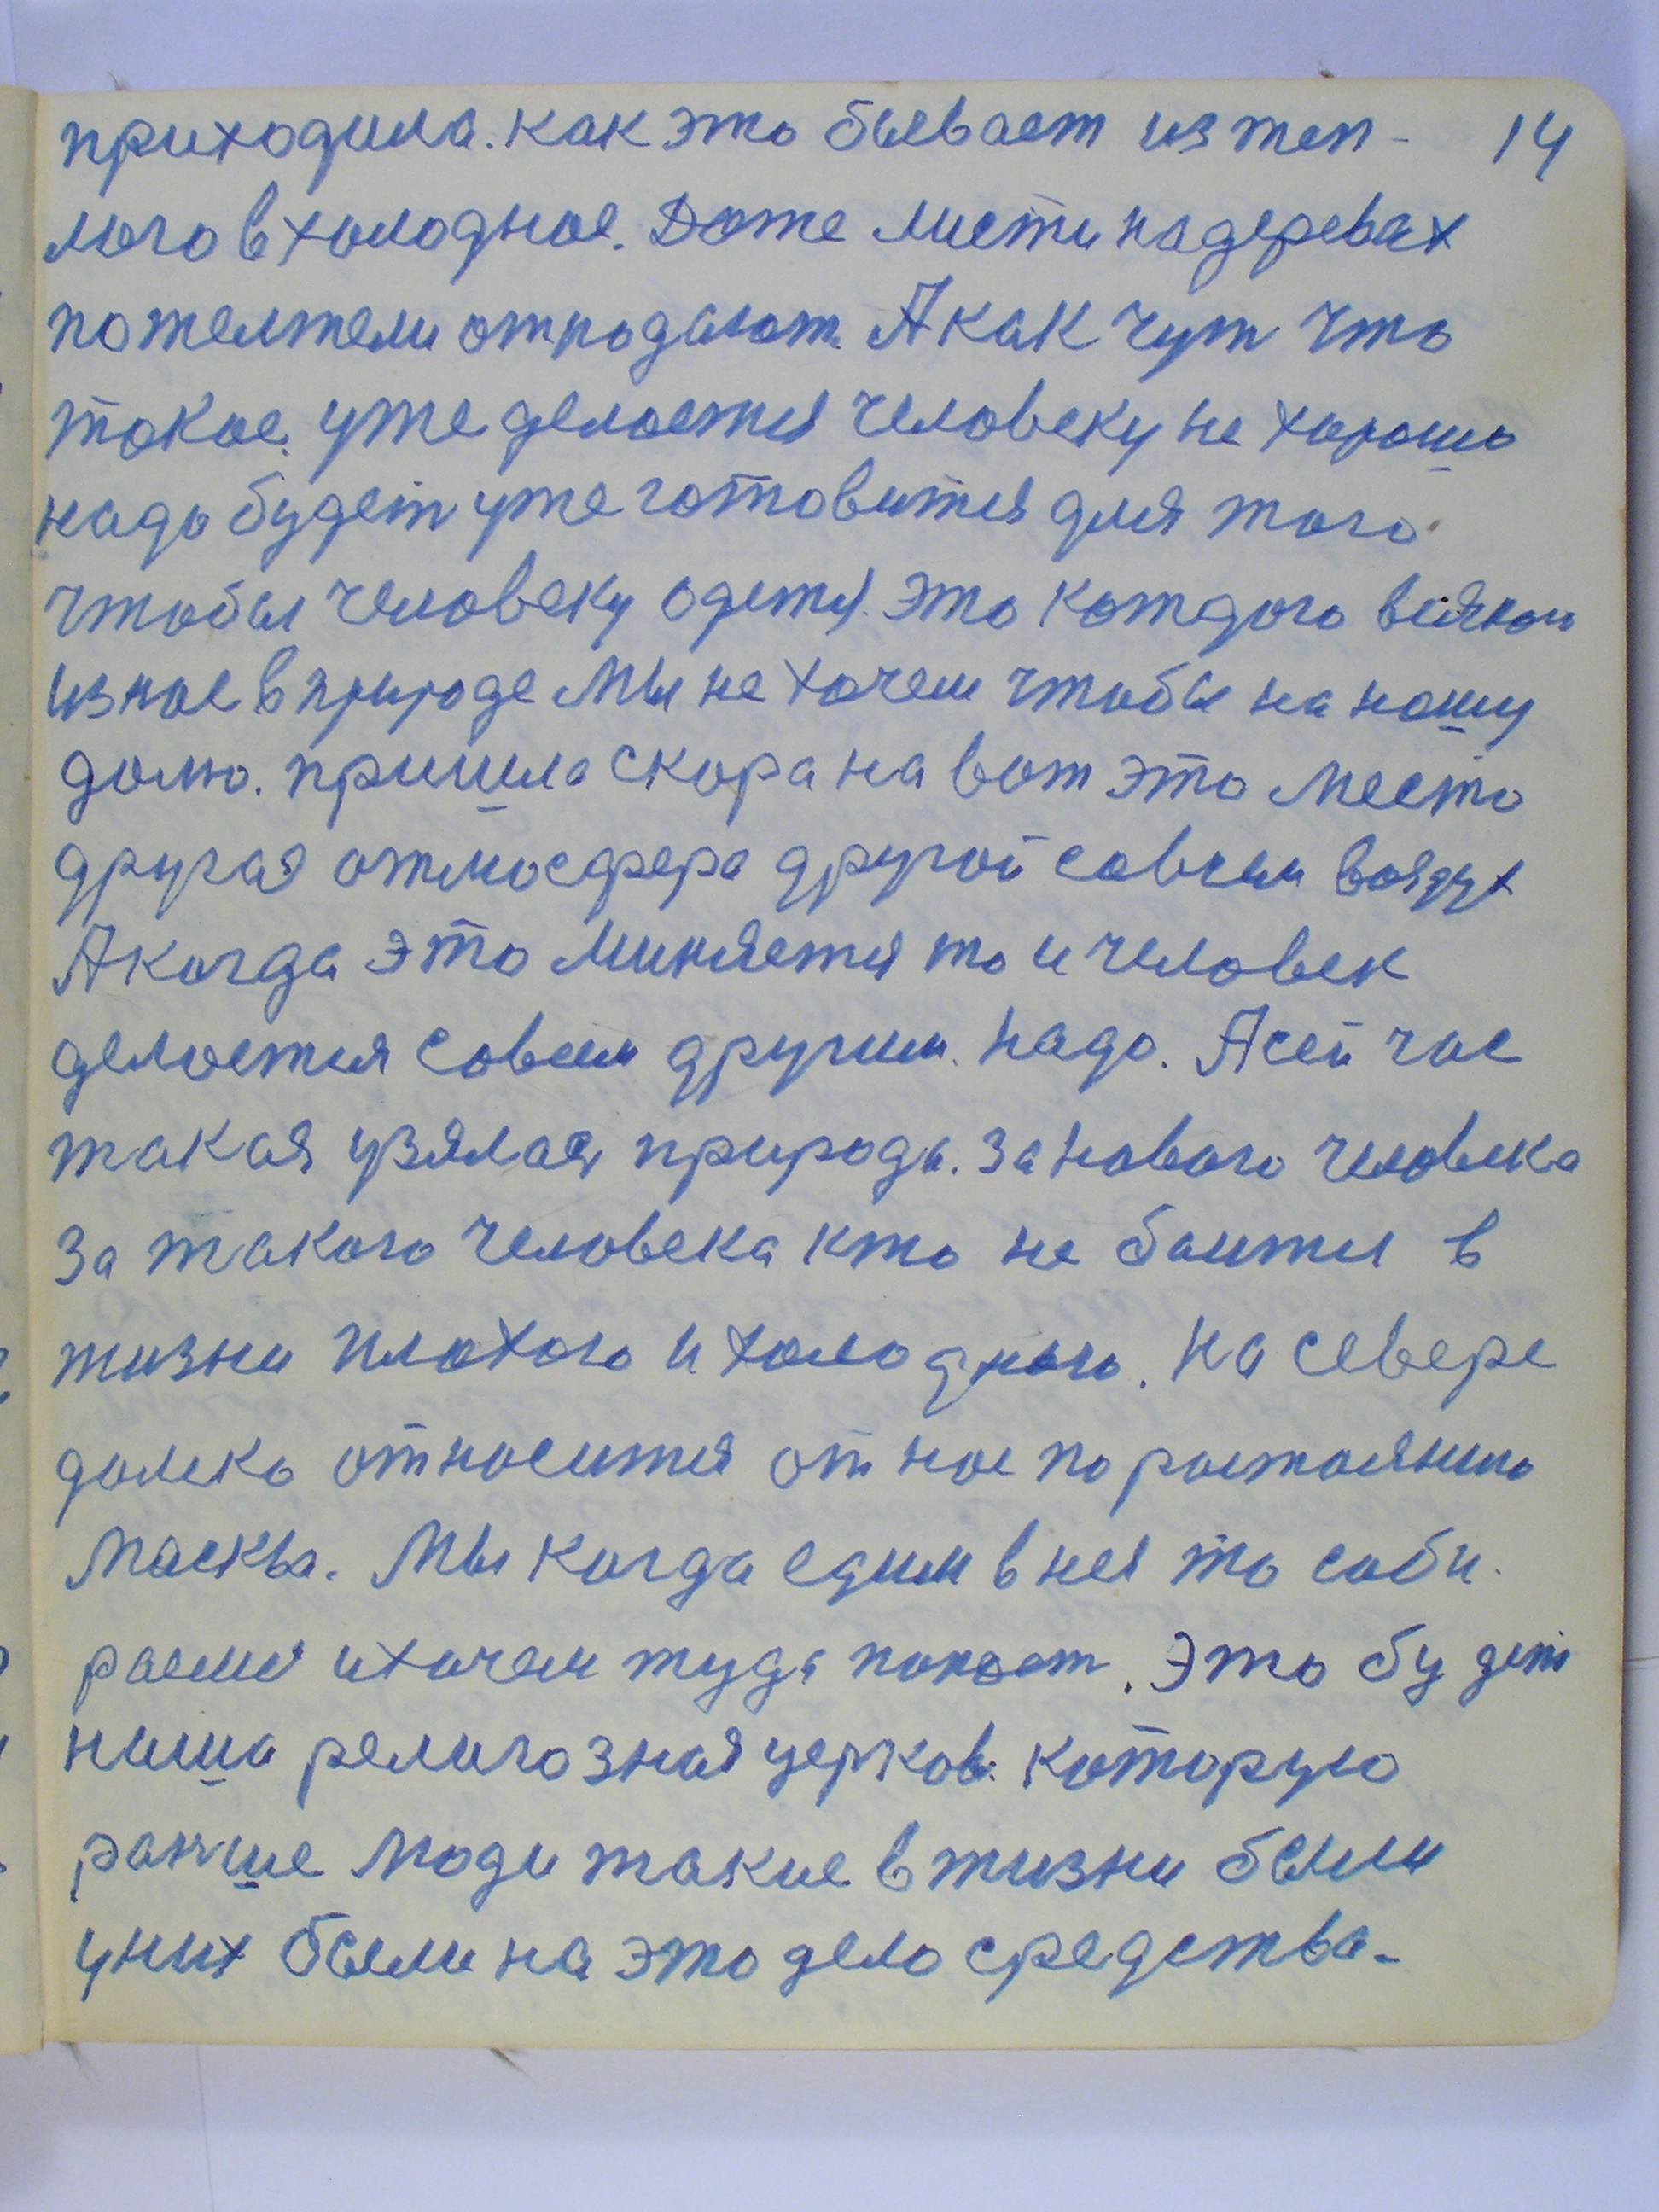 приходила. как это бывает из теп- 14
лого в холодное. Даже листи на деревах
пожелтели отпадают. А как чут что
такое. уже делается человеку не хорошо
надо будет уже готовится для того
чтобы человеку одется. это каждого всякого
из нас в природе Мы не хочем чтобы на нашу
долю. пришла скора на вот это место
другая атмосфера другой совсем воздух
А когда это миняется то и человек
делается совсем другим. надо. А сей час
такая узялася природа. за нового человека
за такого человека кто не боится в
жизни плохого и холодного. на севере
далеко относится от нас по растоянию
Масква. Мы когда едим в нея то соби-
раемся и хочем туда попаст. Это будет
наша религозная церков. которую
ранше люди такие в жизни были
у них были на это дело средства-